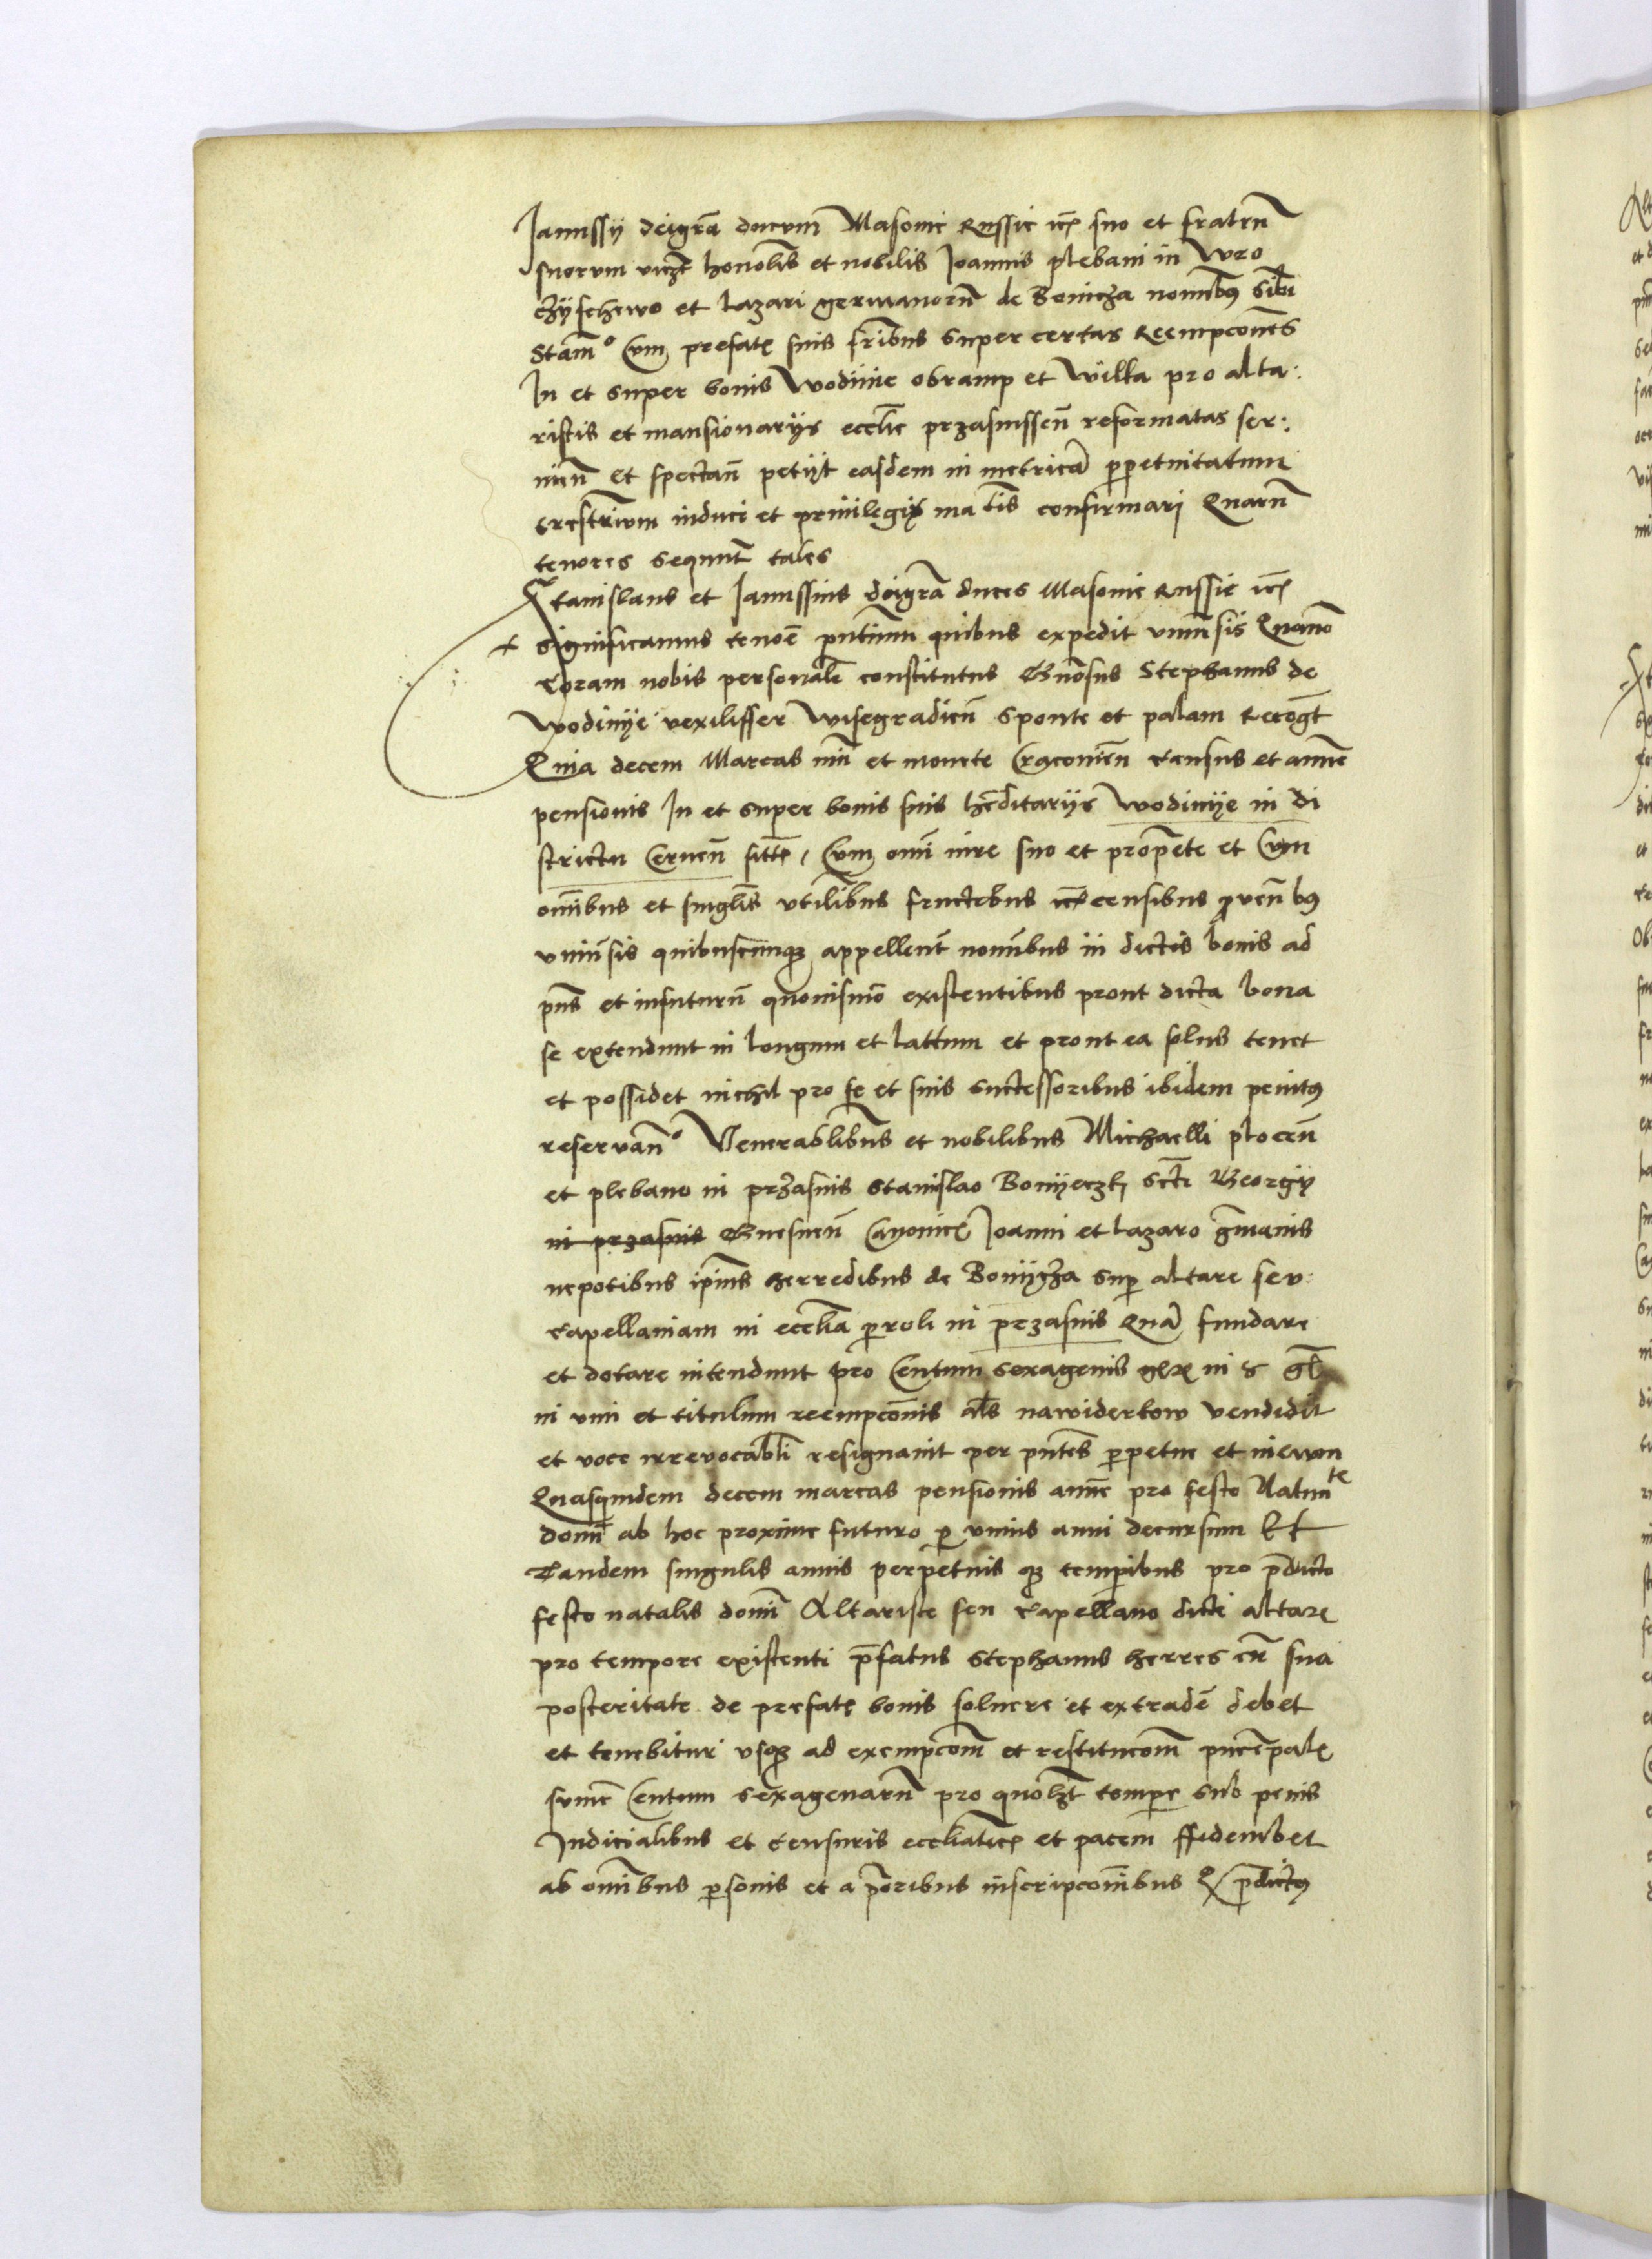 Janussy deigrã ducum Masouie Russie ꝛcꝭ suo et fratrũ
suorum vicꝫt honolis et nobilis Joannis plebani in Wro
czyschewo et Lazari germanorũ de Bonicza nominibꝰ sibi
Stam° Cum prefatꝭ suis fribus super certas Reempcones
In et super bonis Wodinie obramp et Willa pro alta:
ristis et mansionarijs ecclie przasnissen̄ reformatas ser:
uiñ et spectan̄ petijt easdem in metricã ꝑpetuitatum
trestrium induci et priuilegijs ma tis confirmari Quarũ
tenores sequunt̄ tales
Stanislaus et Janussius deigrã duces Masouie Russie ꝛcꝭ
significamus tenoẽ pn̄tium quibus expedit vniuersis Quomo
Coram nobis personalr̄ constitutus Gn̄osus Stephanus de
Wodinye vexilifer Wisegradien̄ sponte et palam Recogt̄
Quia decem Marcas nũi et monete Cracouien̄ census et annue
pensionis In et super bonis suis hr̄ditarijs Wodinye in di
strictu Cernen̄ sitꝭ, Cum omi iure suo et propete et Cum
omibus et singlis vtilibus fructibus censibus ꝓuen̄ bꝰ
vniuersis quibuscunqꝫ appellent̄ nominibus in dictis bonis ad
pn̄s et infuturũ quouismo existentibus prout dicta bona
se extendunt in longum et lattum et prout ea solus tenet
et possidet nichil pro se et suis successoribus ibidem penitꝰ
reseruan° Venerablibus et nobilibus Michaelli plocen̄
et plebano in przasnis Stanislao Bonyeczky scti Georgy
in przasnis Gnesnen̄ Canonicꝭ Joanni et Lazaro gr̄manis
nepotibus ipius herredibus de Bonijcza suꝑ altare seu:
Capellaniam in ecclia ꝑroli in przasnis Quã fundare
et dotare intendunt pro Centum sexagenis in
in vim et titulum reempconis als nawiderkow vendidit
et voce irreuocabli resignauit per pn̄tes ꝑpetue et in ewm
Quasquidem decem marcas pensionis annue pro festo Natiui te
domi ab hoc proxime futuro ꝑ vnius anni decursum Et
Tandem singulis annis perpetuis qꝫ temꝑibus pro p̄dicto
festo natalis domi Altariste seu Capellano dicti altarꝭ
pro tempore existenti p̄fatus Stephanus herres cũ sua
posteritate de prefatꝭ bonis soluere et extradẽ debet
et tenebitur vsqꝫ ad exempcom̄ et restitucom̄ pn̄cipalꝭ
sum̄e Centum sexagenarũ pro quolꝫt temꝑe sub penis
Iudicialibus et censuris ecclīaticꝭ et pacem ffidembet
ab omibus ꝑsonis et a p̄oribus inscripconibus Q p̄dictꝰ